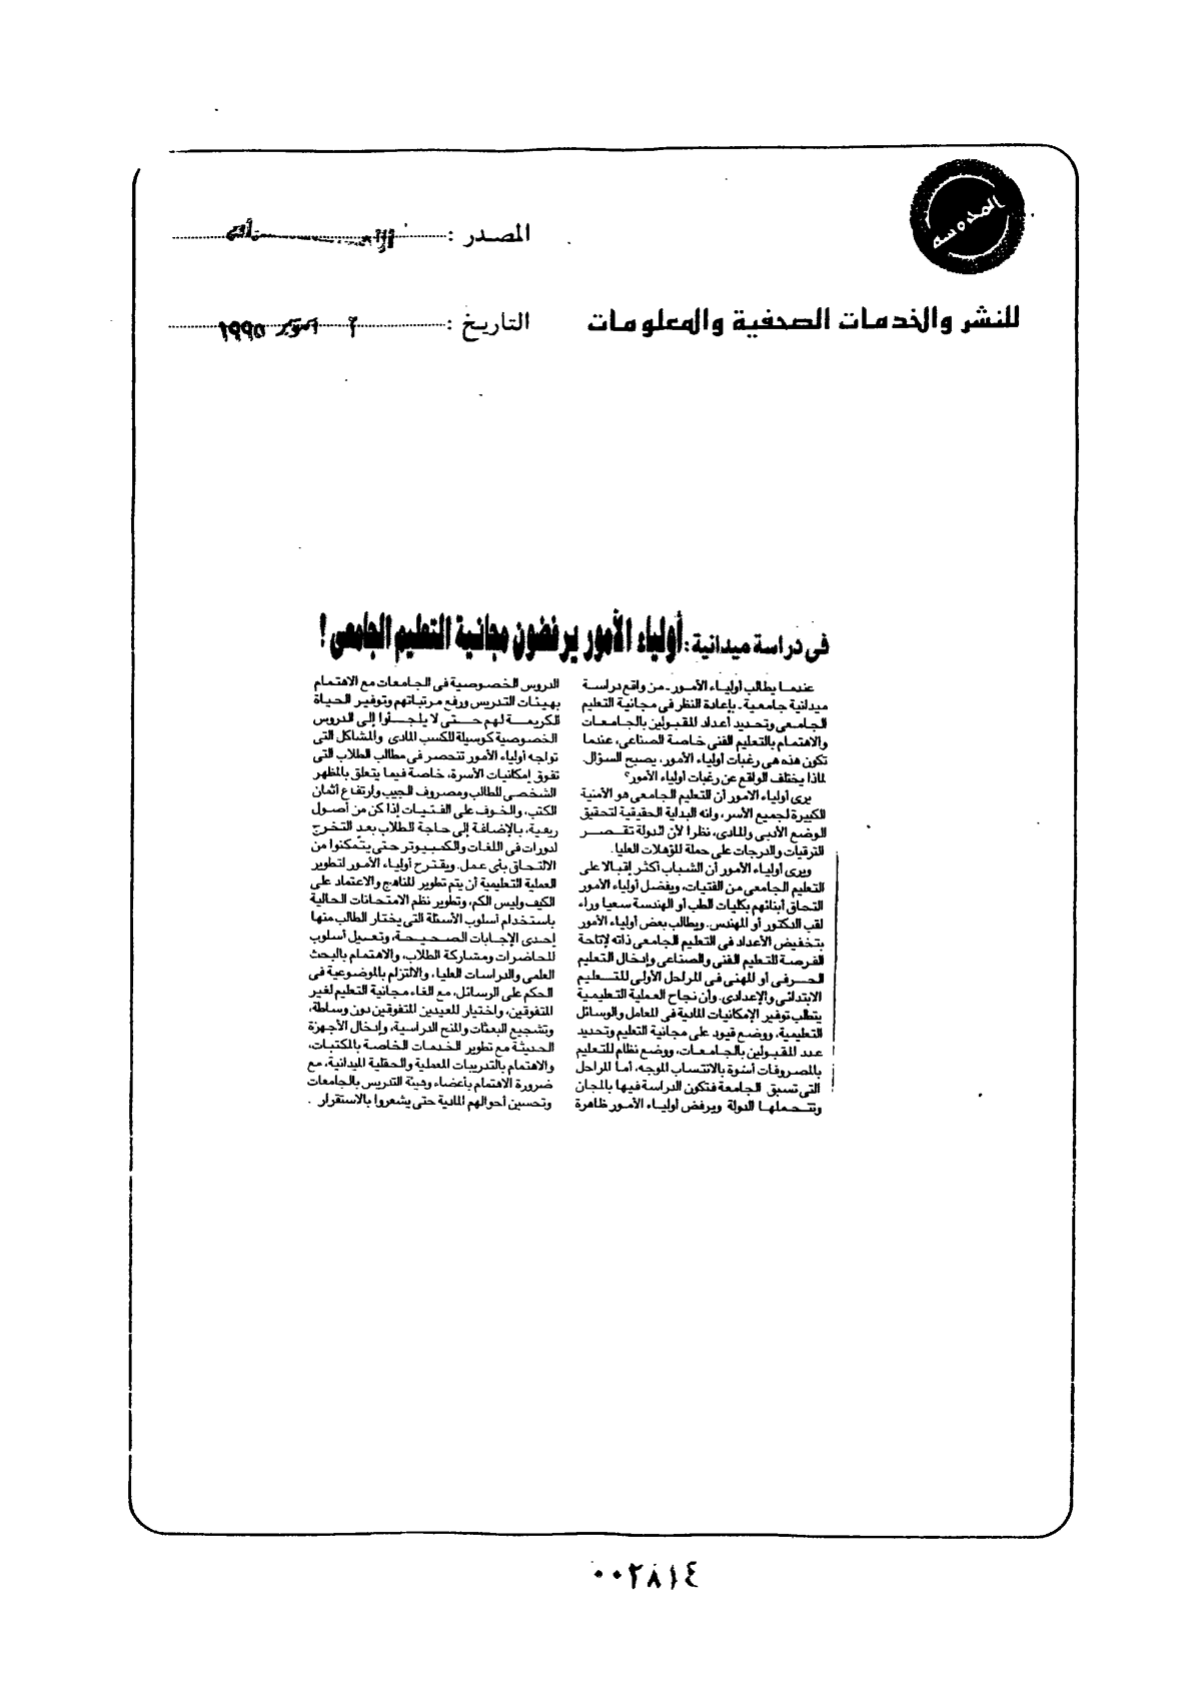 المحروسة
المصدر :
للنشر والخدمات الصحفية والمعلومات
التاريخ : ٢ أكتوبر ١٩٩٥
فى دراسة ميدانية : أولياء الأمور يرفضون مجانية التعليم الجامعى !
عندما يطالب أولياء الأمور - من واقع دراسة
ميدانية جامعية - بإعادة النظر فى مجانية التعليم
الجامعى وتحديد أعداد المقبولين بالجامعات
والاهتمام بالتعليم الفنى خاصة الصناعى، عندما
تكون هذه هى رغبات أولياء الأمور، يصبح السؤال.
لماذا يختلف الواقع عن رغبات أولياء الأمور؟
يرى أولياء الامور أن التعليم الجامعى هو الأمنية
الكبيرة لجميع الأسر، وانه البداية الحقيقية لتحقيق
الوضع الأدبى والمادى، نظرا لأن الدولة تقصر
الترقيات والدرجات على حملة المؤهلات العليا.
ويرى أولياء الأمور أن الشباب أكثر إقبالا على
التعليم الجامعى من الفتيات، ويفضل أولياء الأمور
التحاق أبنائهم بكليات الطب أو الهندسة سعيا وراء
لقب الدكتور أو المهندس. ويطالب بعض أولياء الأمور
بتخفيض الأعداد فى التعليم الجامعى ذاته لإتاحة
الفرصة للتعليم الفنى والصناعى وإدخال التعليم
الحرفى أو المهنى فى المراحل الأولى للتعليم
الابتدائى والإعدادى. وأن نجاح العملية التعليمية
يتطلب توفير الإمكانيات المادية فى المعامل والوسائل
التعليمية، ووضع قيود على مجانية التعليم وتحديد
عدد المقبولين بالجامعات، ووضع نظام للتعليم
بالمصروفات أسوة بالانتساب الموجه، أما المراحل
التى تسبق الجامعة فتكون الدراسة فيها بالمجان
وتتحملها الدولة ويرفض أولياء الأمور ظاهرة
الدروس الخصوصية فى الجامعات مع الاهتمام
بهيئات التدريس ورفع مرتباتهم وتوفير الحياة
الكريمة لهم حتى لا يلجأوا إلى الدروس
الخصوصية كوسيلة للكسب المادى والمشاكل التى
تواجه أولياء الأمور تنحصر فى مطالب الطلاب التى
تفوق إمكانيات الأسرة، خاصة فيما يتعلق بالمظهر
الشخصى للطالب ومصروف الجيب وارتفاع أثمان
الكتب، والخوف على الفتيات إذا كن من أصول
ريفية، بالإضافة إلى حاجة الطلاب بعد التخرج
لدورات فى اللغات والكمبيوتر حتى يتمكنوا من
الالتحاق بأى عمل. ويقترح أولياء الأمور لتطوير
العملية التعليمية أن يتم تطوير المناهج والاعتماد على
الكيف وليس الكم، وتطوير نظم الامتحانات الحالية
باستخدام أسلوب الأسئلة التى يختار الطالب منها
إحدى الإجابات الصحيحة، وتعديل أسلوب
المحاضرات ومشاركة الطلاب، والاهتمام بالبحث
العلمى والدراسات العليا، والالتزام بالموضوعية فى
الحكم على الرسائل، مع الغاء مجانية التعليم لغير
المتفوقين، واختيار المعيدين المتفوقين دون وساطة،
وتشجيع البعثات والمنح الدراسية، وإدخال الأجهزة
الحديثة مع تطوير الخدمات الخاصة بالمكتبات،
والاهتمام بالتدريبات العملية والحقلية الميدانية، مع
ضرورة الاهتمام بأعضاء وهيئة التدريس بالجامعات
وتحسين أحوالهم المادية حتى يشعروا بالاستقرار .
٠٠٢٨١٤